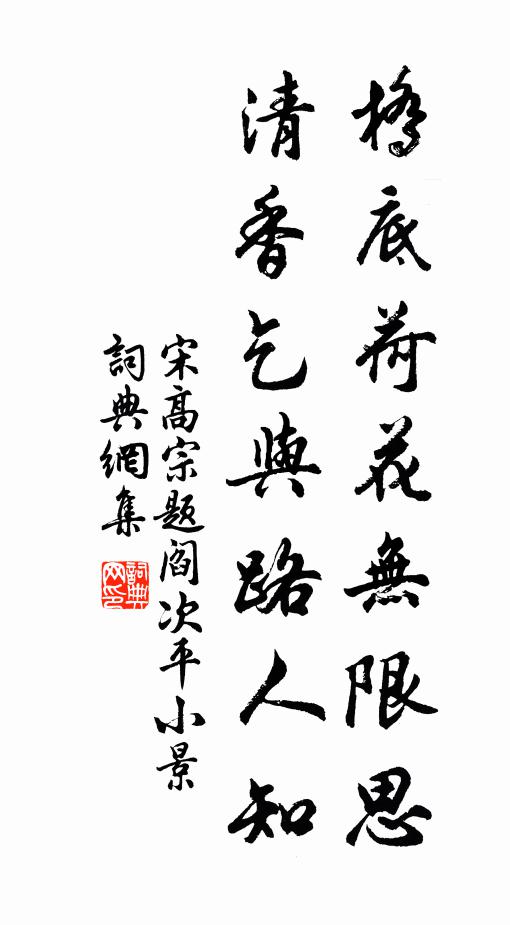 橋底荷花無限思
清香乞與路人知
宋高宗題閻次平小景
詞典網集
詞典网印